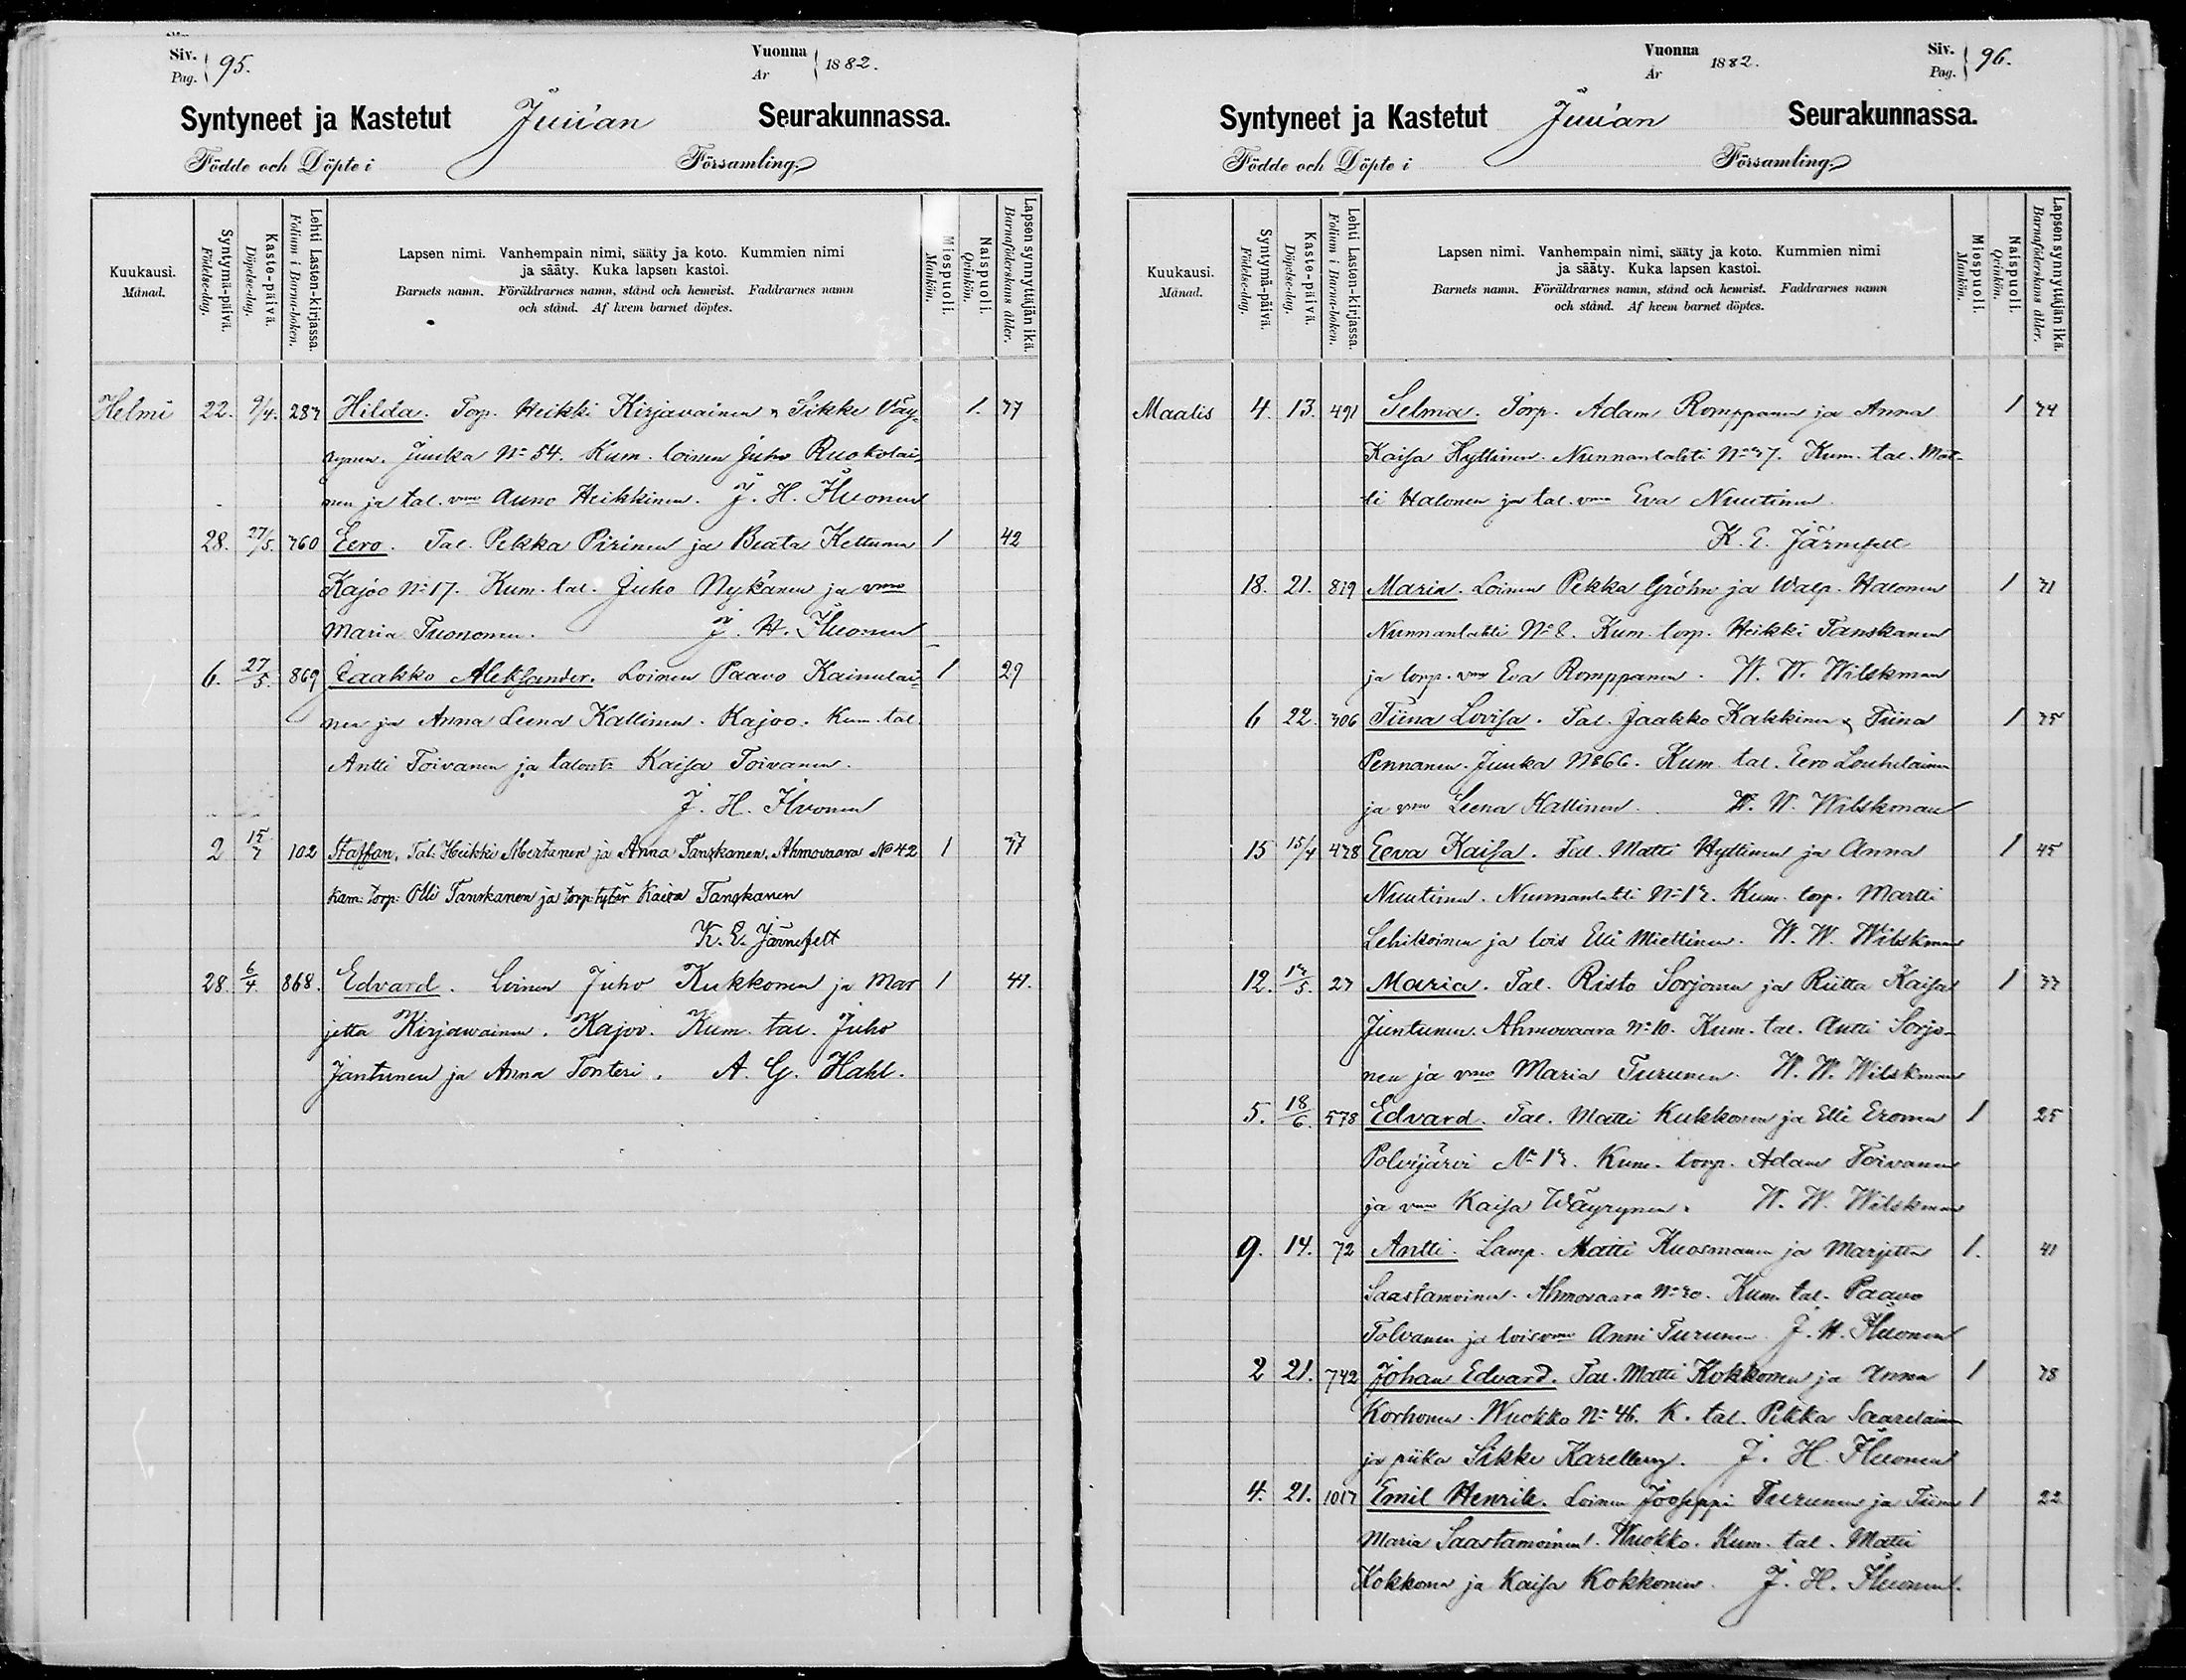 Siv. Pag. 95.
Vuonna År 1882.
Syntyneet ja Kastetut Juuan Seurakunnassa.
Födde och Döpte i Församling.
Kuukausi. Månad.
Syntymä-päivä. Födelse-dag.
Kaste-päivä. Döpelse-dag.
Lehti Lasten-kirjassa. Folium i Barna-boken.
Lapsen nimi. Vanhempain nimi, sääty ja koto. Kummien nimi
ja sääty. Kuka lapsen kastoi.
Barnets namn. Föräldrarnes namn, stånd och hemvist. Faddrarnes namn
och stånd. Af hvem barnet döptes.
Miespuoli. Mankön.
Naispuoli. Qvinkön.
Lapsen synnyttäjän ikä. Barnaföderskans ålder.
Helmi 22. 9/4. 287 Hilda. Torp. Heikki Kirjavainen & Sikke Väy- 1. 37
rynen. Juuka No 54. Kum. loinen Juho Ruokolai-
nen ja tal. vmo Auno Heikkinen. J. H. Ihuonen
28. 27/5. 760 Eero. Tal. Pekka Pirinen ja Beata Kettunen 1 42
Kajoo No 17. Kum. tal. Juho Nykänen ja vmo
Maria Tuononen. J. H. Ihuonen
6. 27/5. 869 Jaakko Aleksander. Loinen Paavo Kainulai- 1 29
nen ja Anna Leena Kallinen. Kajoo. Kum. tal
Antti Toivanen ja talont: Kaisa Toivanen.
J. H. Ihuonen
2 15/7 102 Staffan. Tal. Heikki Mertanen ja Anna Tanskanen. Ahmovaara No 42 1 37
Kum: torp: Olli Tanskanen ja torp: tytär Kaisa Tanskanen
K. E. Järnefelt
28. 6/4. 868. Edvard. Loinen Juho Kukkonen ja Mar 1 41.
jetta Kirjawainen. Kajoo. Kum. tal. Juho
Jantunen ja Anna Tonteri. A. G. Hahl.
Vuonna År 1882.
Siv. Pag. 96.
Syntyneet ja Kastetut Juuan Seurakunnassa.
Födde och Döpte i Församling.
Kuukausi. Månad.
Syntymä-päivä. Födelse-dag.
Kaste-päivä. Döpelse-dag.
Lehti Lasten-kirjassa. Folium i Barna-boken.
Lapsen nimi. Vanhempain nimi, sääty ja koto. Kummien nimi
ja sääty. Kuka lapsen kastoi.
Barnets namn. Föräldrarnes namn, stånd och hemvist. Faddrarnes namn
och stånd. Af hvem barnet döptes.
Miespuoli. Mankön.
Naispuoli. Qvinkön.
Lapsen synnyttäjän ikä. Barnaföderskans ålder.
Maalis 4. 13. 491 Selma. Torp. Adam Romppanen ja Anna 1 34
Kaisa Hyttinen. Nunnanlahti No 37. Kum. tal. Mat-
ti Halonen ja tal. vmo Eva Nuutinen.
K. E. Järnefelt
18. 21. 819 Maria. Loinen Pekka Gröhn ja Walp. Halonen 1 31
Nunnanlahti No 8. Kum. torp. Heikki Tanskanen
ja torp. vmo Eva Romppanen. W. W. Wilskman
6 22. 306 Tiina Lovisa. Tal. Jaakko Kakkinen & Tiina 1 35
Pennanen. Juuka No 66. Kum. tal. Eero Louhelainen
ja vmo Leena Kallinen. W. W. Wilskman
15 15/4 438 Eeva Kaisa. Tal. Matti Hyttinen ja Anna 1 45
Nuutinen. Nunnanlahti No 13. Kum. torp. Martti
Lehikoinen ja lois Elli Miettinen. W. W. Wilskman
12. 13/5. 27 Maria. Tal. Risto Sorjonen ja Riitta Kaisa 1 37
Juntunen. Ahmovaara No 10. Kum. tal. Antti Sorjo-
nen ja vmo Maria Turunen. W. W. Wilskman
5. 18/6. 578 Edvard. Tal. Matti Kukkonen ja Elli Eronen 1 25
Polvijärvi No 13. Kum. torp. Adam Toivanen
ja vmo Kaisa Wäyrynen. W. W. Wilskman
9. 14. 72 Antti. Lamp. Matti Kuosmanen ja Marjetta 1. 41
Saastamoinen. Ahmovaara No 30. Kum. tal. Paavo
Tolvanen ja lois vmo Anni Turunen. J. H. Ihuonen
2 21. 742 Johan Edvard. Tal. Matti Kokkonen ja Anna 1 38
Korhonen. Wuokko No 46. K. tal. Pekka Saarelainen
ja piika Sikke Karellberg. J. H. Ihuonen
4. 21. 1017 Emil Henrik. Loinen Jooseppi Turunen ja Tiina 1 22
Maria Saastamoinen. Wuokko. Kum. tal. Matti
Kokkonen ja Kaisa Kokkonen. J. H. Ihuonen.